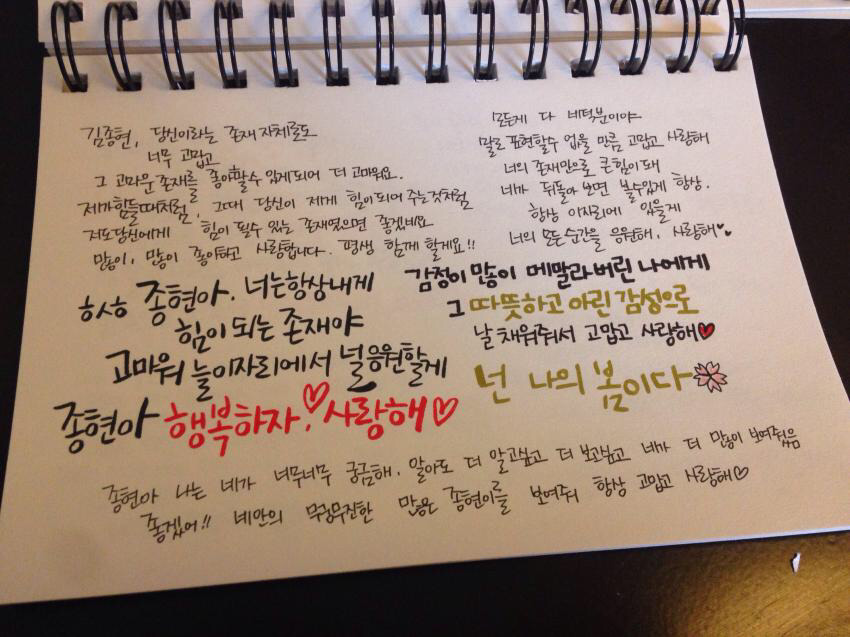 김종현, 당신이라는 존재 자체로도
너무 고맙고
그 고마운 존재를 좋아할수 있게되어 더 고마워요.
제가힘들때처럼, 그대 당신이 제게 힘이되어 주는것처럼
저도당신에게 힘이 될수 있는 존재였으면 좋겠네요
많이, 많이 좋아하고 사랑합니다. 평생 함께 할게요!!
모든게 다 네덕분이야
말로 표현할수 없을 만큼 고맙고 사랑해
너의 존재만으로 큰힘이돼
네가 뒤돌아 보면 볼수있게 항상.
항상 이자리에 있을게
너의 모든순간을 응원해, 사랑해♥
항상 종현아. 너는항상내게
힘이 되는 존재야
고마워 늘이자리에서 널응원할게
종현아 행복하자! 사랑해♡
감정이 많이 메말라버린 나에게
그 따뜻하고 아린 감성으로
날 채워줘서 고맙고 사랑해♥
넌 나의 봄이다
종현아 나는 네가 너무너무 궁금해. 알아도 더 알고싶고 더 보고싶고 네가 더 많이 보여줬음
좋겠어!! 네안의 무궁무진한 많은 종현이를 보여줘 항상 고맙고 사랑해♡